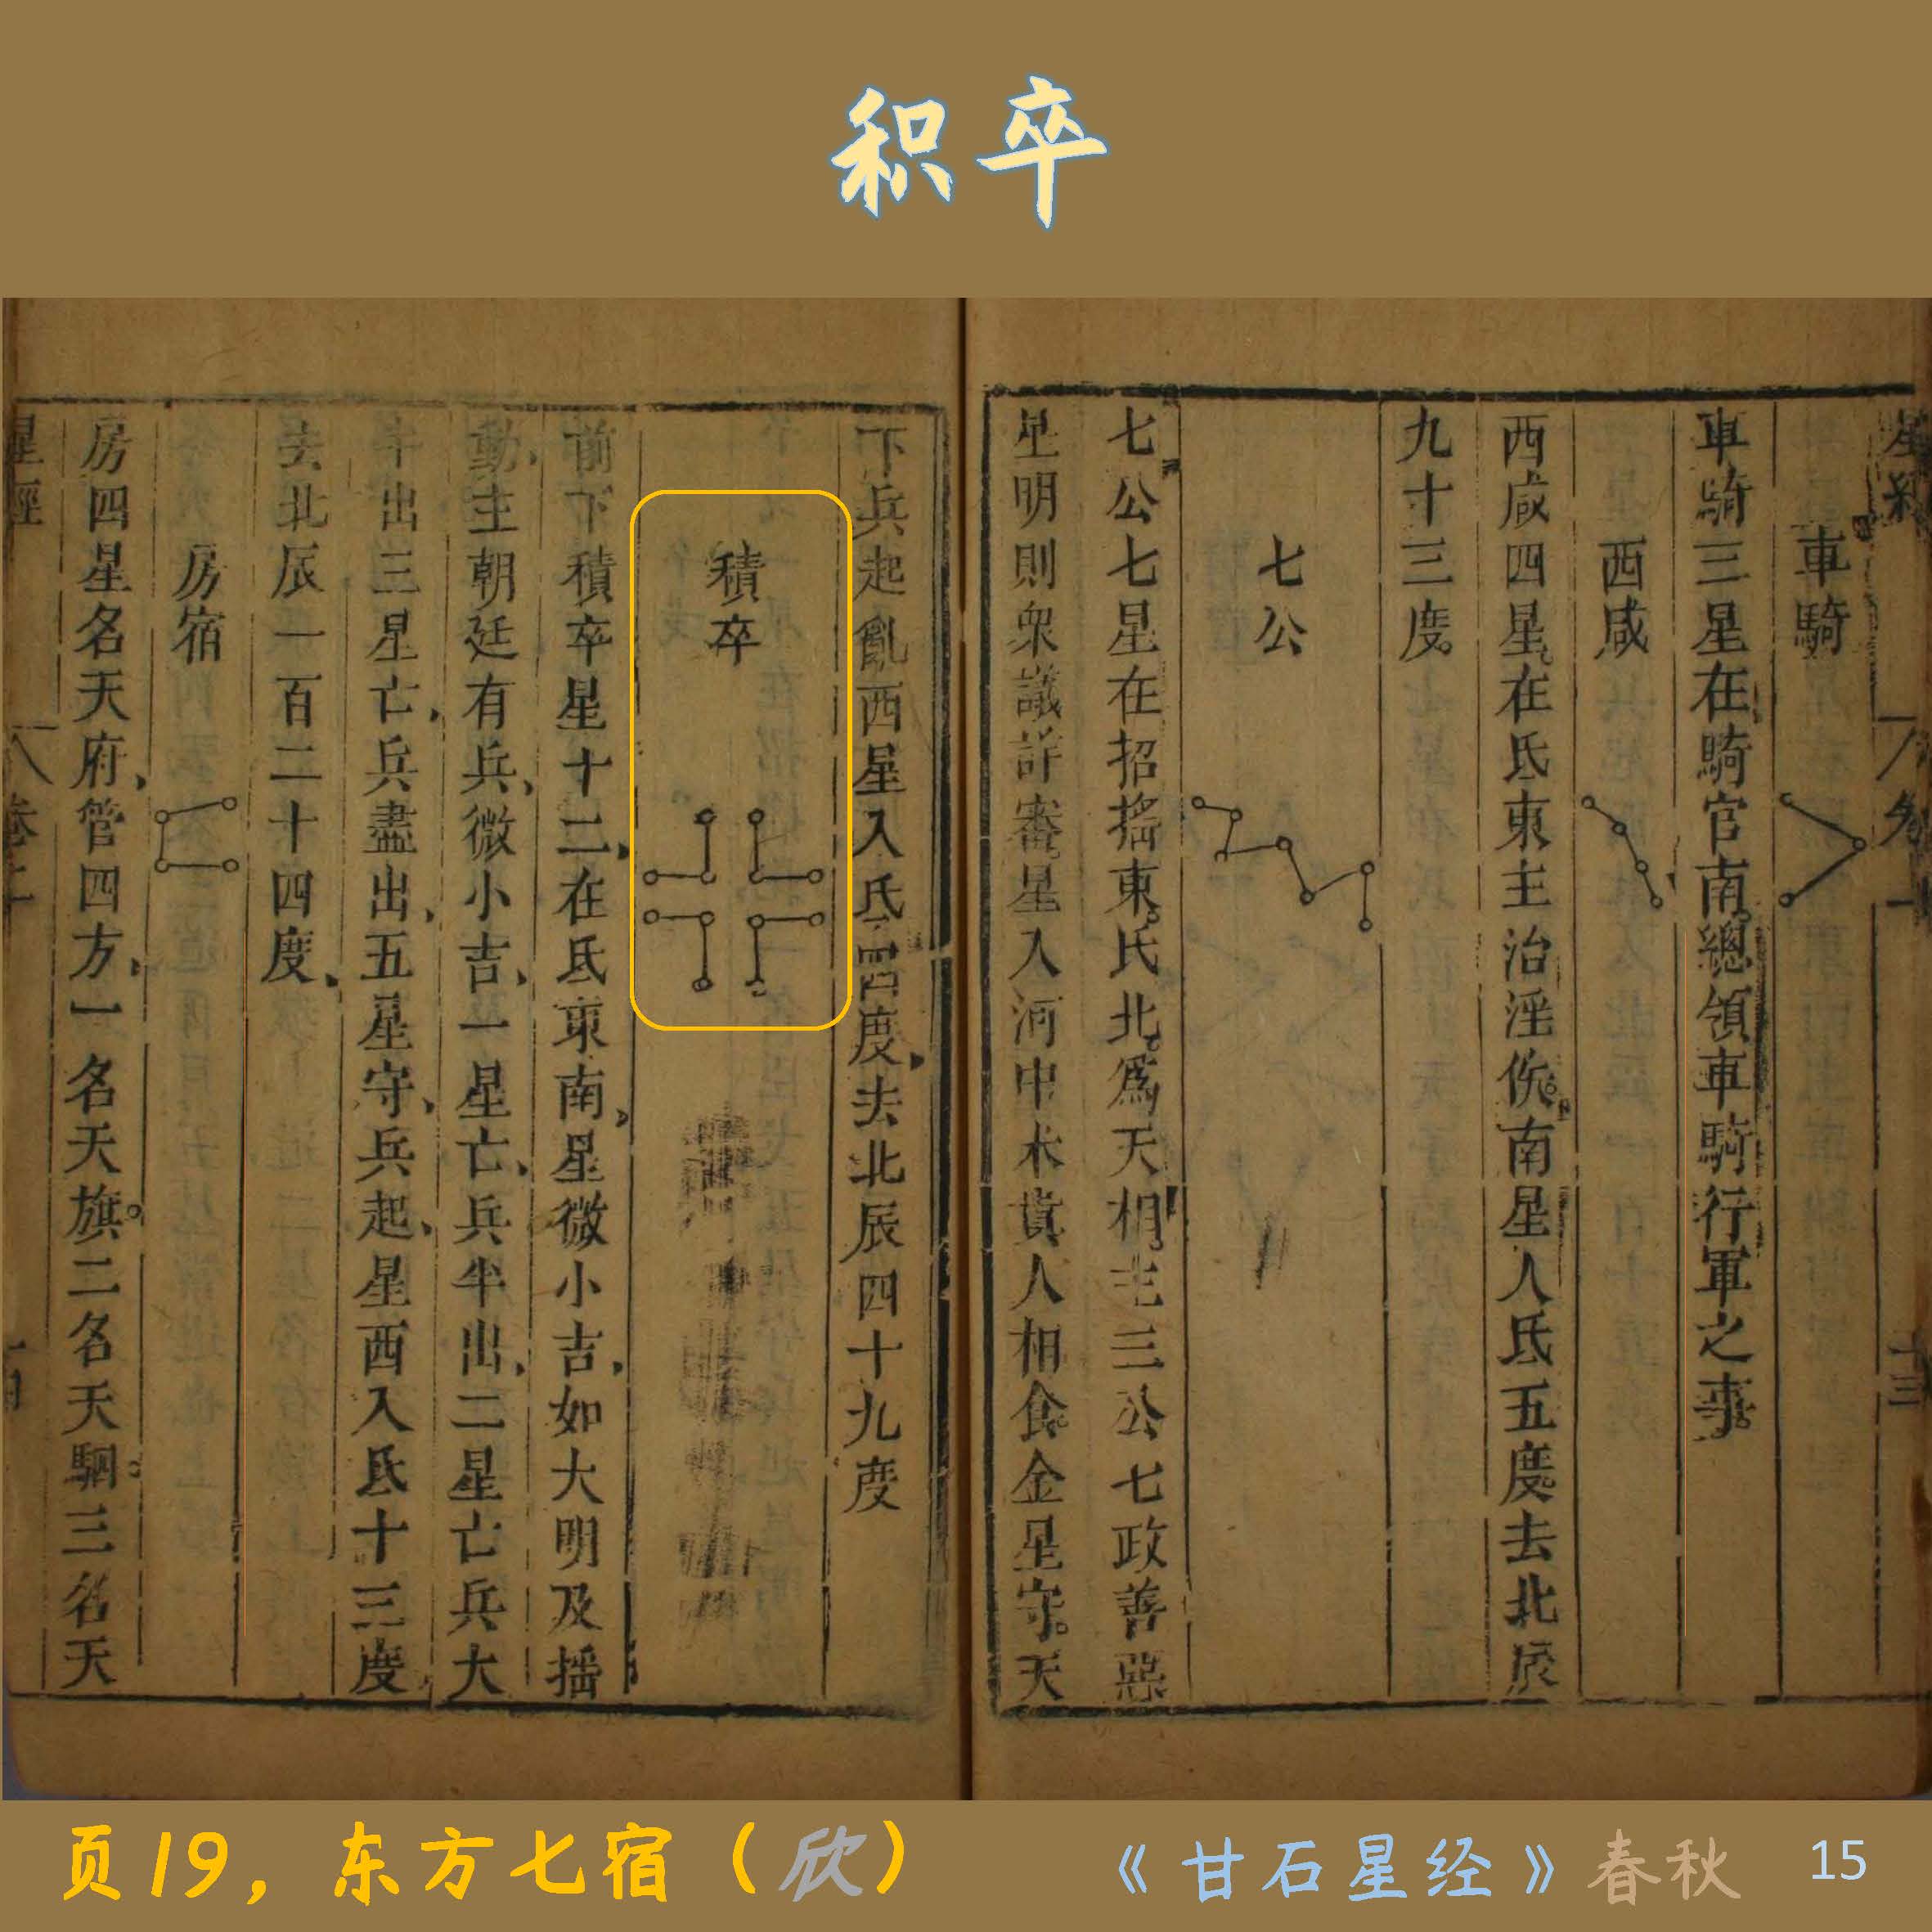 积卒
星經
卷上
十三
車騎
車騎三星在騎官南總領車騎行軍之事
西咸
西咸四星在氐東主治淫佚南星入氐五度去北辰
九十三度
七公
七公七星在招搖東氐北爲天相主三公七政善惡
星明則衆議詳審星入河中米貴人相食金星守天
下兵起亂西星入氐四度去北辰四十九度
積卒
前下積卒星十二在氐東南星微小吉如大明及搖
動主朝廷有兵微小吉一星亡兵半出二星亡兵大
半出三星亡兵盡出五星守兵起星西入氐十三度
去北辰一百二十四度
房宿
房四星名天府管四方一名天旗二名天駟三名天
星經
卷上
页19，东方七宿（欣）
《甘石星经》春秋 15